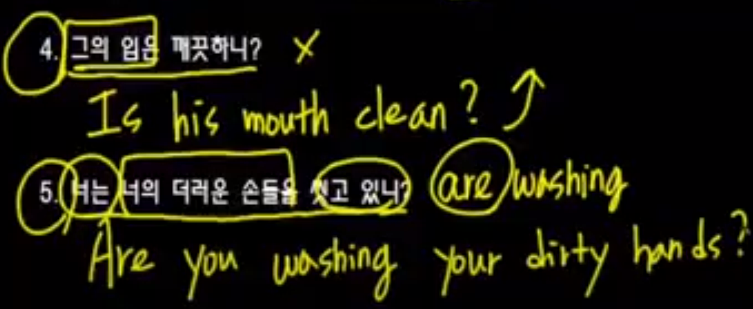 4. 그의 입은 깨끗하니? X
Is his mouth clean?
5. 너는 너의 더러운 손들을 씻고 있니? are washing
Are you washing your dirty hands?